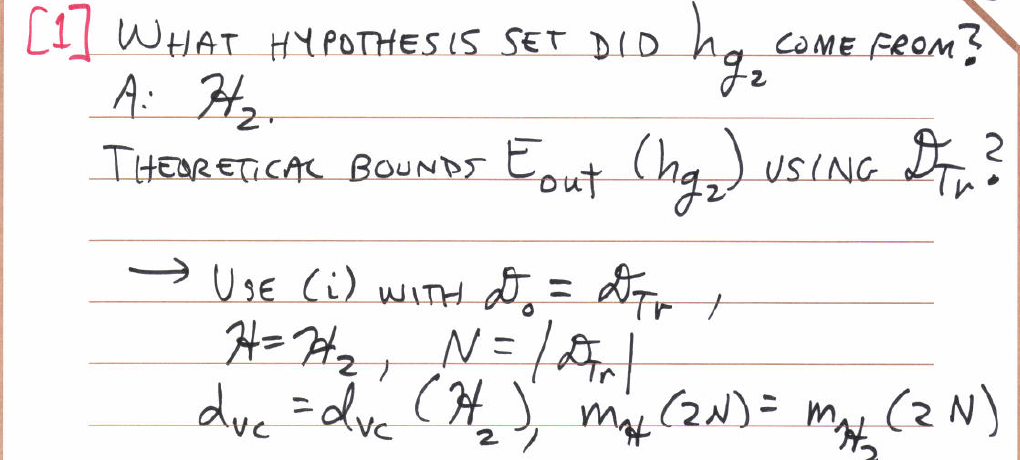 [1] WHAT HYPOTHESIS SET DID h_g₂ COME FROM?
A: ℋ₂.
THEORETICAL BOUNDS E_out (h_g₂) USING 𝒟_Tr?
→ USE (i) WITH 𝒟₀ = 𝒟_Tr,
ℋ = ℋ₂, N = |𝒟_Tr|
d_vc = d_vc (ℋ₂), m_ℋ (2N) = m_ℋ₂ (2N)